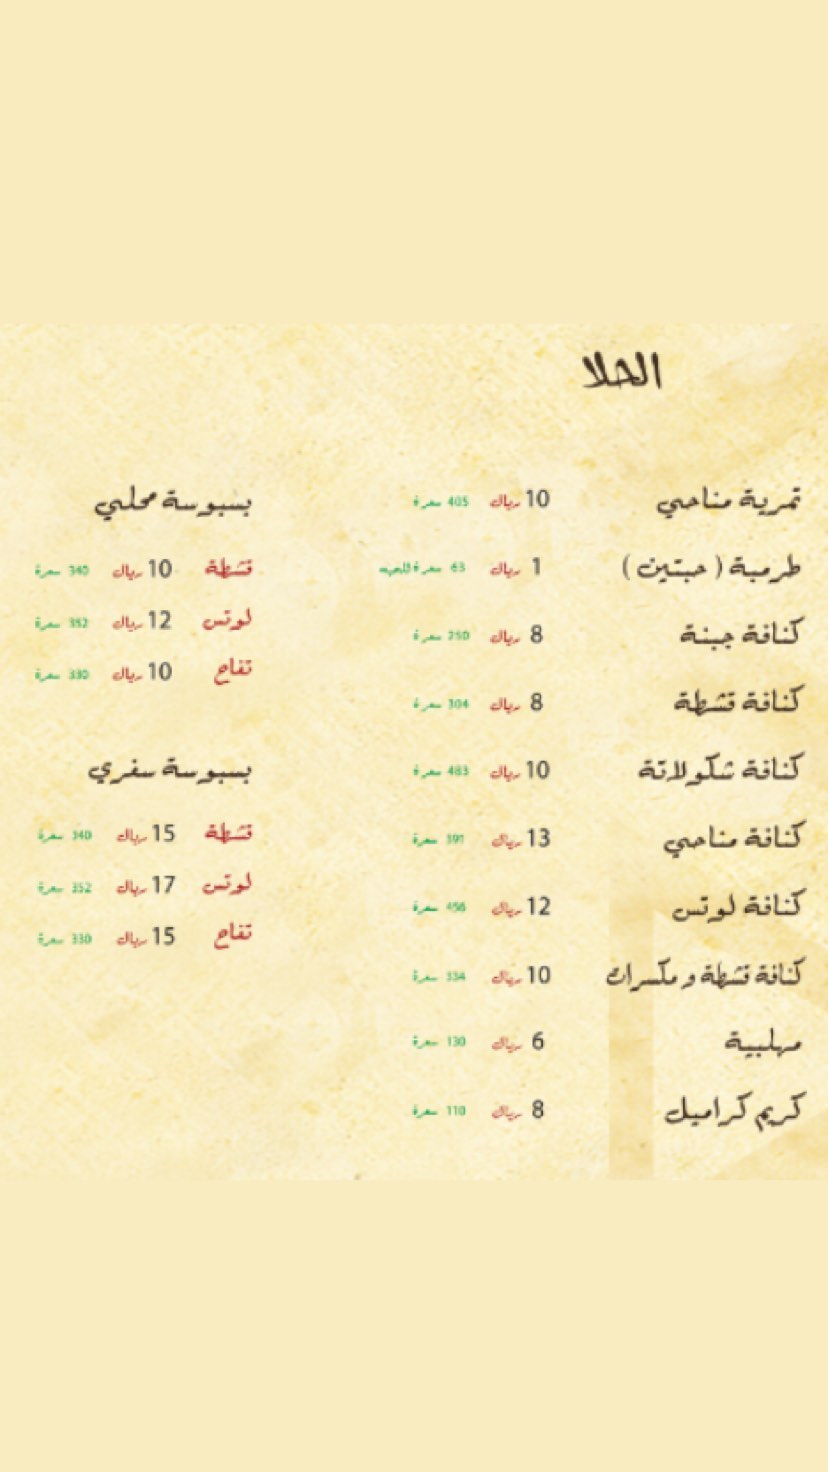 الحلا
تمرية مناحي 10 ريال 405 سعرة
طرمبة ( حبتين ) 1 ريال 63 سعرة للحبه
كنافة جبنة 8 ريال 250 سعرة
كنافة قشطة 8 ريال 304 سعرة
كنافة شكولاتة 10 ريال 483 سعرة
كنافة مناحي 13 ريال 391 سعرة
كنافة لوتس 12 ريال 456 سعرة
كنافة قشطة و مكسرات 10 ريال 334 سعرة
مهلبية 6 ريال 130 سعرة
كريم كراميل 8 ريال 110 سعرة
بسبوسة محلي
قشطة 10 ريال 340 سعرة
لوتس 12 ريال 352 سعرة
تفاح 10 ريال 330 سعرة
بسبوسة سفري
قشطة 15 ريال 340 سعرة
لوتس 17 ريال 352 سعرة
تفاح 15 ريال 330 سعرة